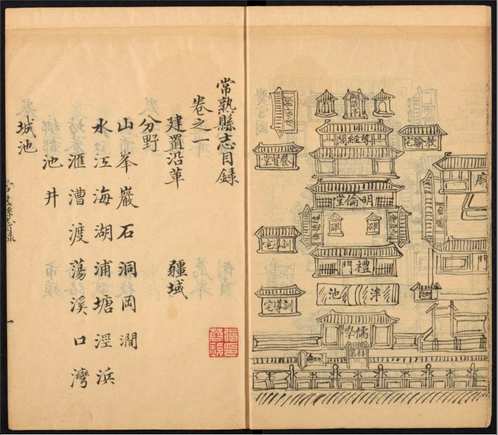 尊經閣
明倫堂
禮門
泮池
儒學
常熟縣志目錄
卷之一
建置沿革 疆域
分野
山 峯 巖 石 洞 岡 澗
水 江 海 湖 浦 塘 涇 浜
滙 漕 渡 蕩 溪 口 灣
池 井
城池
一